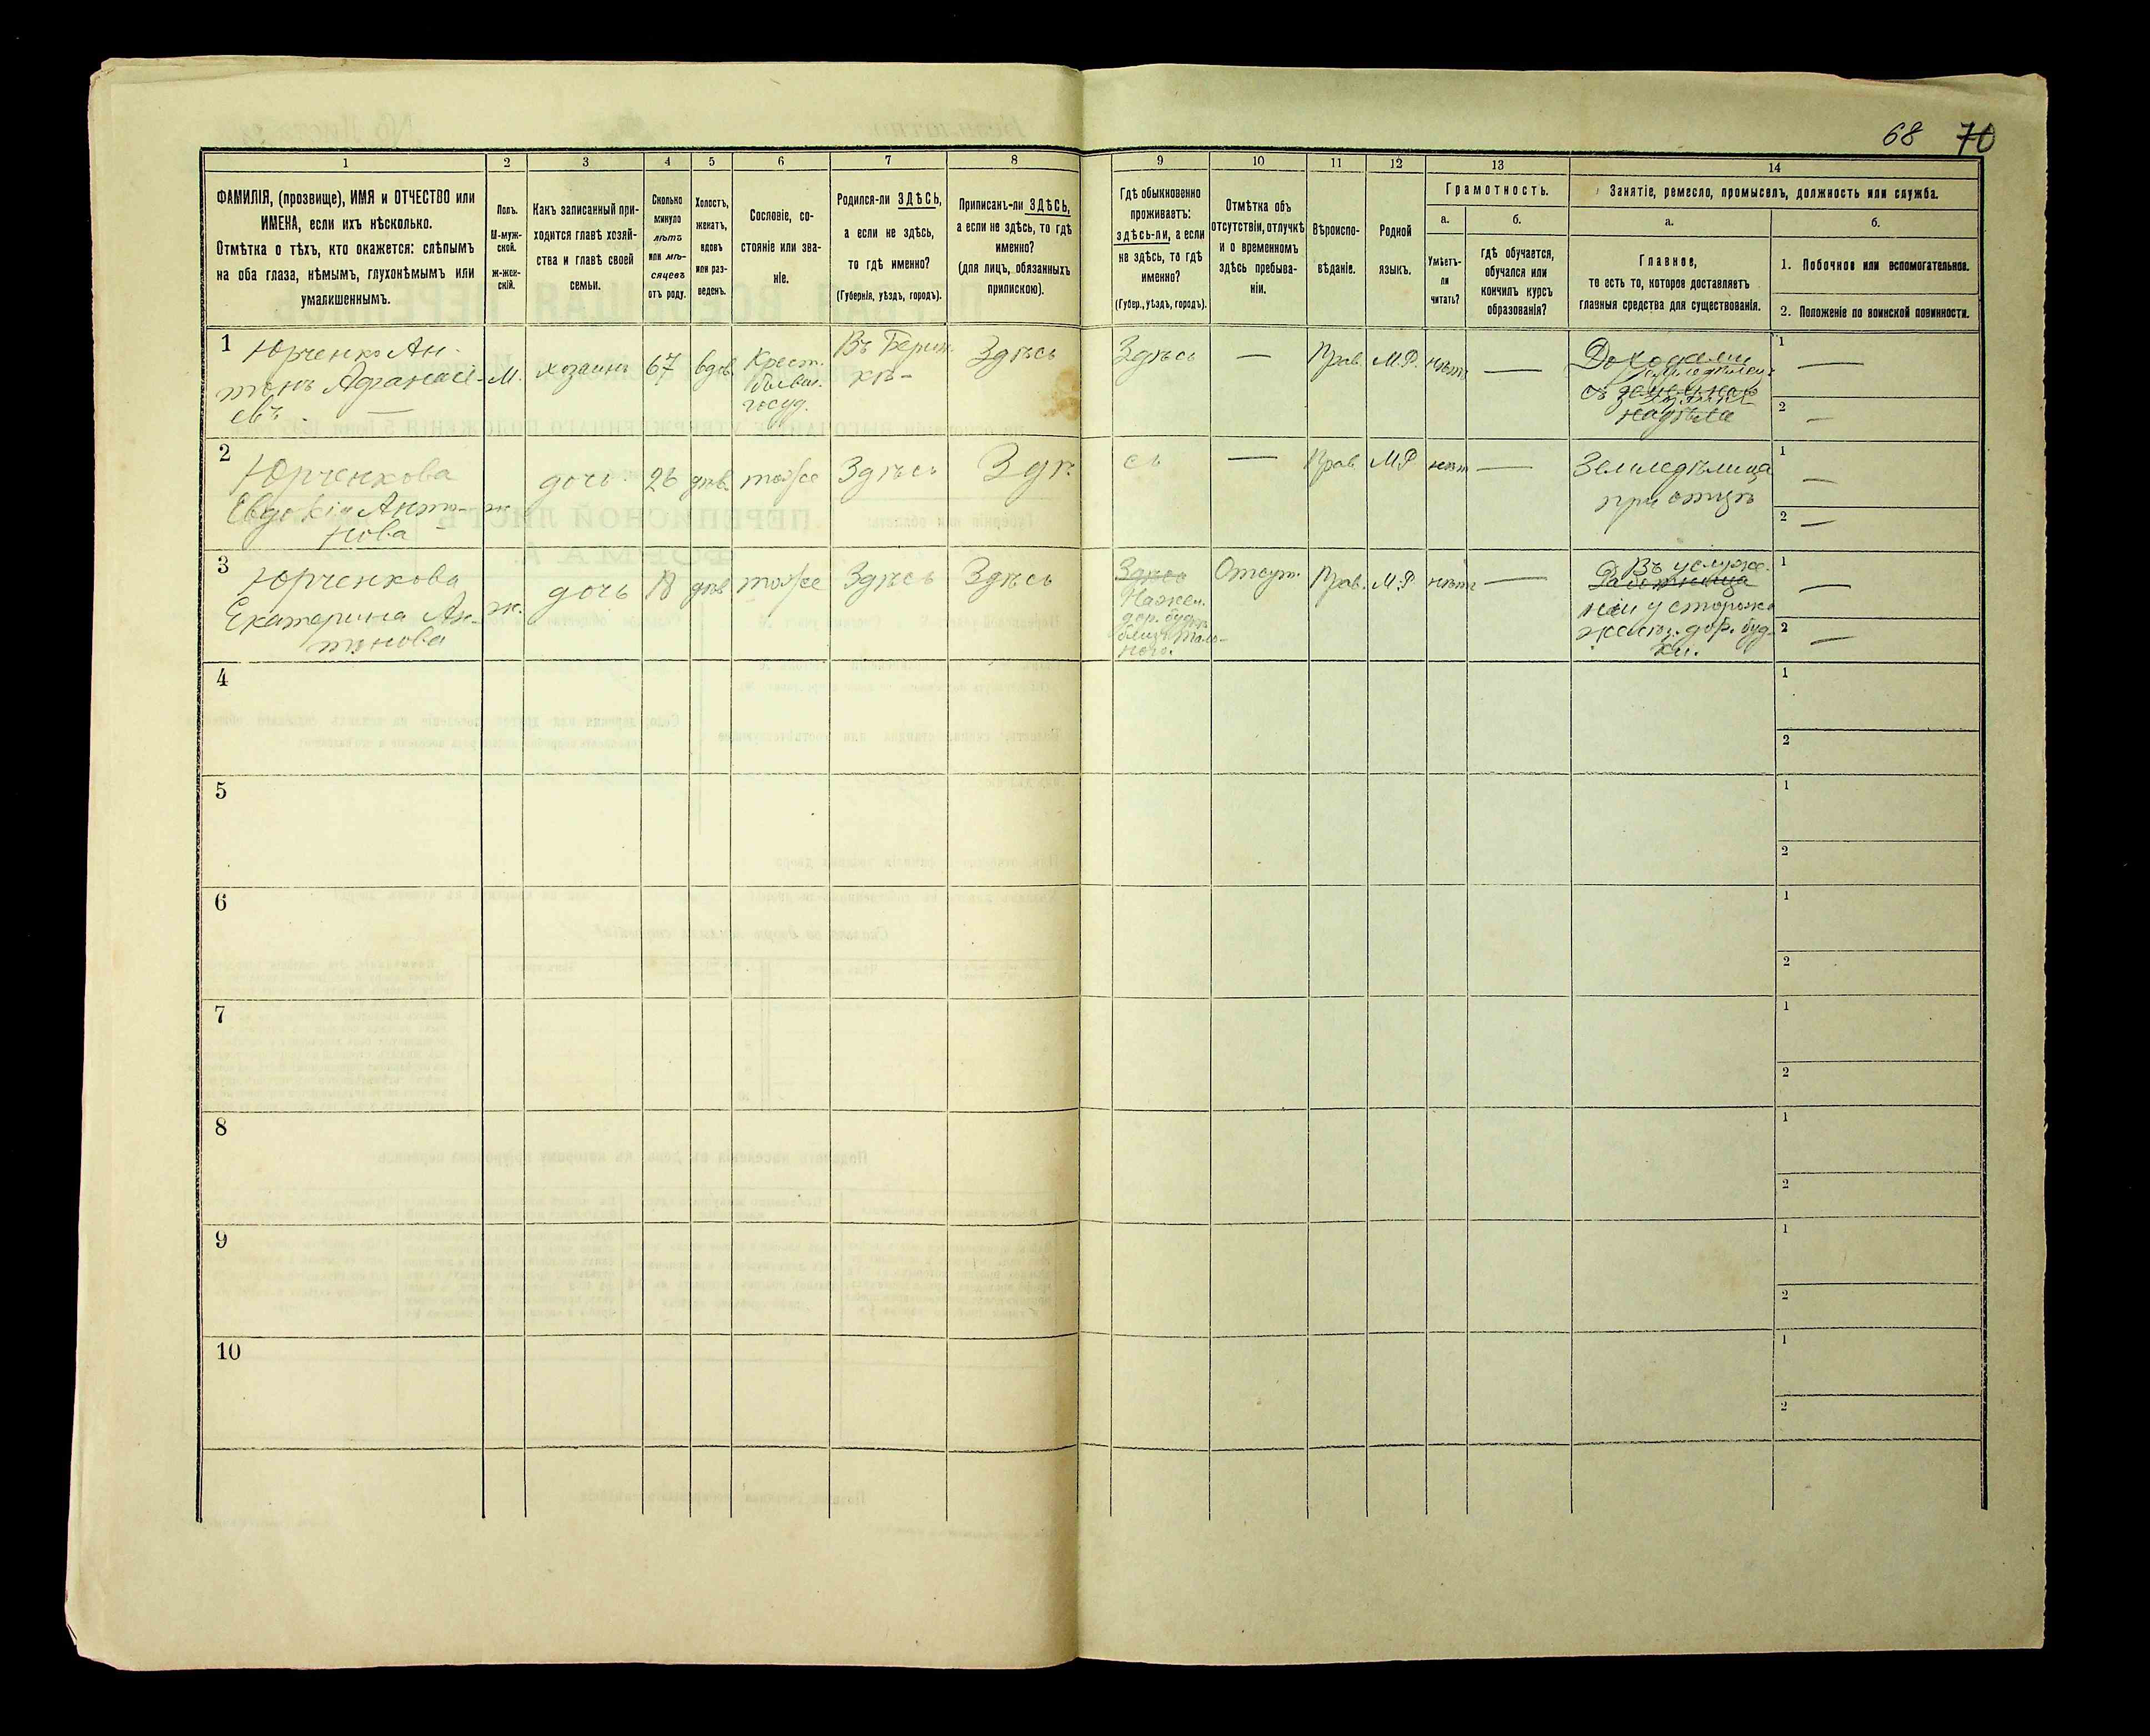 68 70
1 2 3 4 5 6 7 8 9 10 11 12 13 14
ФАМИЛІЯ, (прозвище), ИМЯ и ОТЧЕСТВО или
ИМЕНА, если ихъ нѣсколько.
Отмѣтка о тѣхъ, кто окажется: слѣпымъ
на оба глаза, нѣмымъ, глухонѣмымъ или
умалишеннымъ.
Полъ.
М-муж-
ской.
Ж-жен-
скій.
Какъ записанный при-
ходится главѣ хозяй-
ства и главѣ своей
семьи.
Сколько
минуло
лѣтъ
или мѣ-
сяцевъ
отъ роду.
Холостъ,
женатъ,
вдовъ
или раз-
веденъ.
Сословіе, со-
стояніе или зва-
ніе.
Родился-ли ЗДѢСЬ,
а если не здѣсь,
то гдѣ именно?
(Губернія, уѣздъ, городъ).
Приписанъ-ли ЗДѢСЬ,
а если не здѣсь, то гдѣ
именно?
(для лицъ, обязанныхъ
припискою).
Гдѣ обыкновенно
проживаетъ:
здѣсь-ли, а если
не здѣсь, то гдѣ
именно?
(Губер., уѣздъ, городъ).
Отмѣтка объ
отсутствіи, отлучкѣ
и о временномъ
здѣсь пребыва-
ніи.
Вѣроиспо-
вѣданіе.
Родной
языкъ.
Грамотность.
а.
Умѣетъ-
ли
читать?
б.
гдѣ обучается,
обучался или
кончилъ курсъ
образованія?
Занятіе, ремесло, промыселъ, должность или служба.
а.
Главное,
то есть то, которое доставляетъ
главныя средства для существованія.
б.
1. Побочное или вспомогательное.
2. Положеніе по воинской повинности.
1
Юрченко Ан-
тонъ Афанасі-
евъ —
М.
хозяинъ
67
вдов.
Крест.
бывш.
госуд.
Здѣсь
Здѣсь
—
Прав.
М.Р.
нѣтъ
—
надѣла
1 —
2 —
2
Юрченкова
Евдокія Анто-
нова
ж.
дочь
26
дѣв.
тоже
Здѣсь
Здѣ-
сь
—
Прав.
М.Р.
нѣт
—
Земледѣлица
при отцѣ
1 —
2 —
3
Юрченкова
Екатерина Ан-
тонова
ж.
дочь
18
дѣв
тоже
Здѣсь
Здѣсь
Здѣсь
На жел.
дор. будкѣ
близъ
Отсут.
Прав.
М.Р.
нѣтъ
—
Въ услуже-
Работница
ніи у сторожа
желѣз. дор. буд-
ки.
1 —
2 —
4
1
2
5
1
2
6
1
2
7
1
2
8
1
2
9
1
2
10
1
2